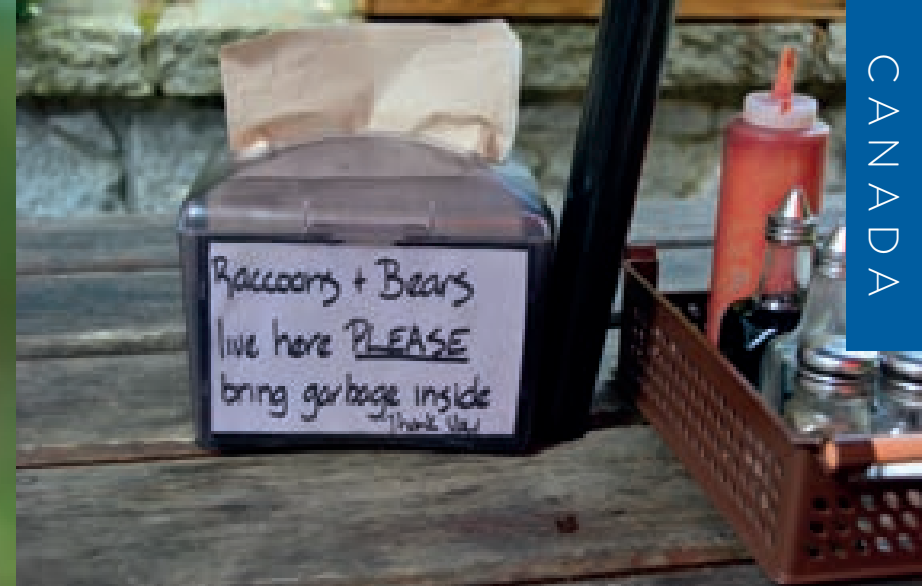 Raccoons + Bears
live here PLEASE
bring garbage inside
Thank You!
CANADA